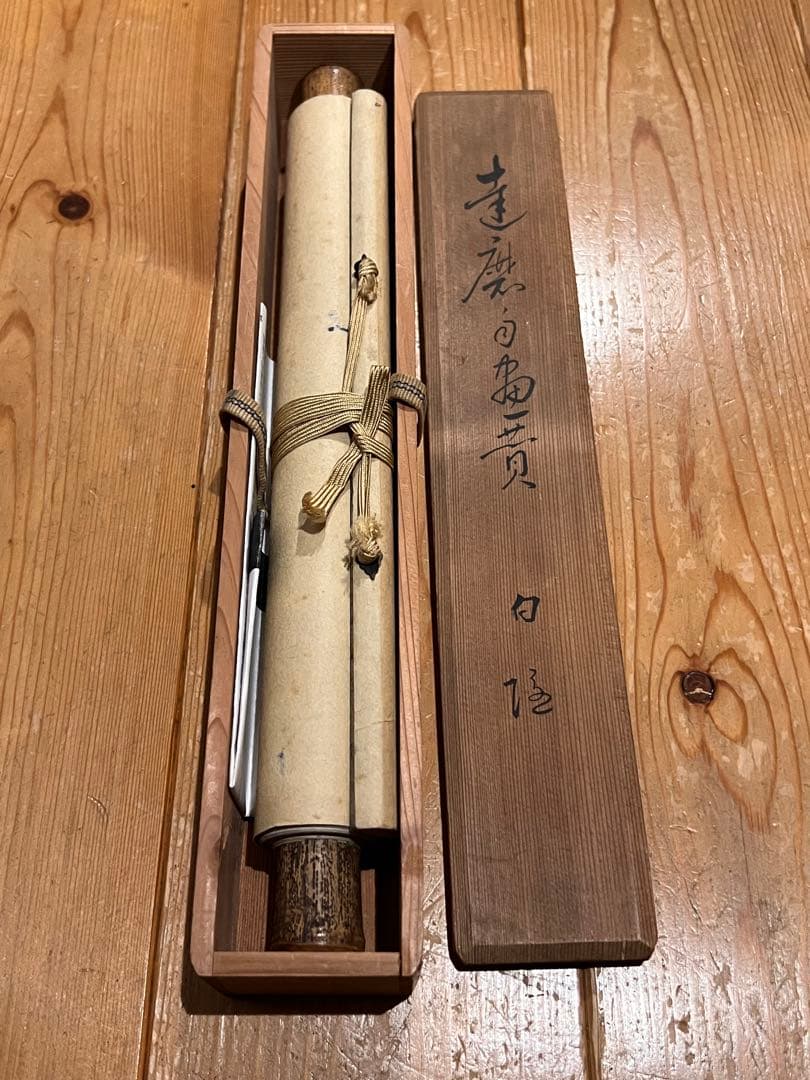 達磨自画賛
白隠